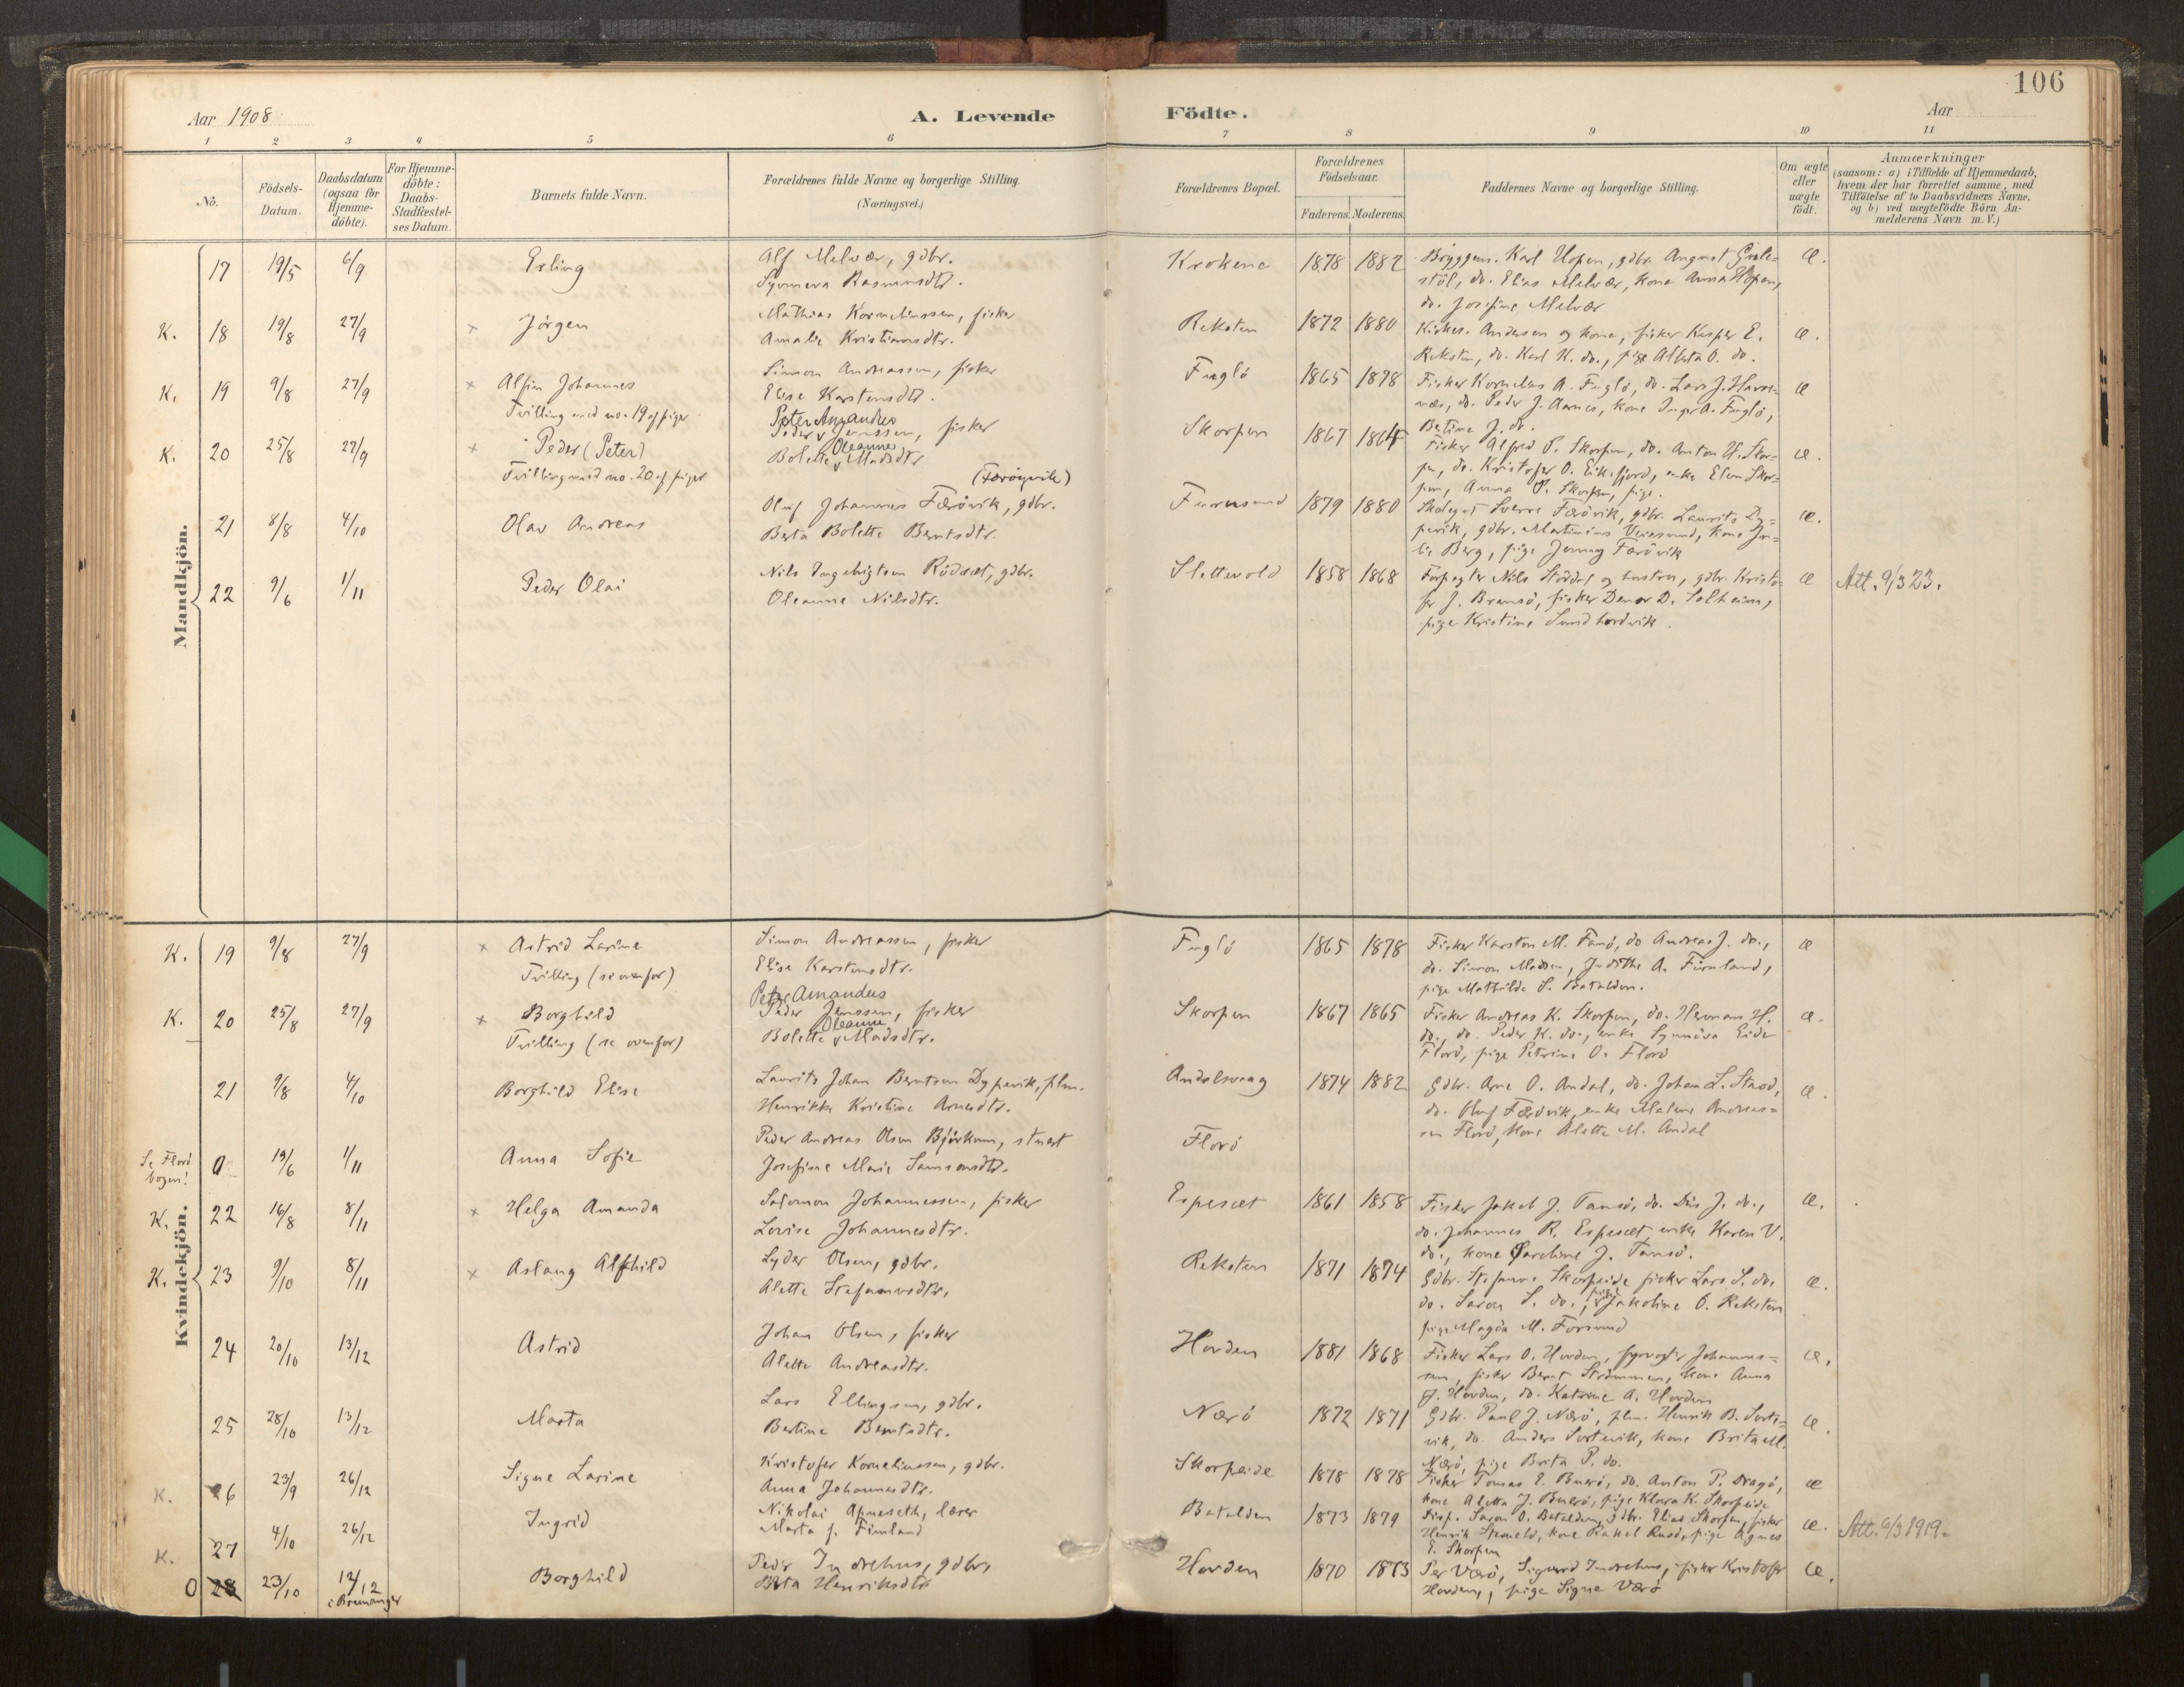 106
Aar 1908
A. Levende Födte.
Aar
1 2 3 4 5 6 7 8 9 10 11
No.
Födsels-Datum.
Daabsdatum (ogsaa for Hjemme-döbte).
For Hjemme-döbte: Daabs-Stadfæstel-ses Datum.
Barnets fulde Navn.
Forældrenes fulde Navne og borgerlige Stilling.
(Næringsvei.)
Forældrenes Bopæl.
Forældrenes Födselsaar.
Faderens. Moderens.
Faddernes Navne og borgerlige Stilling.
Om ægte eller uægte födt.
Anmærkninger
(saasom: a) i Tilfælde af Hjemmedaab, hvem der har forrettet samme, med Tilföielse af to Daabsvidners Navne, og b) ved uægtefödte Börn An-melderens Navn m.V.)
Mandkjön.
17 19/5 6/9 Erling Alf Melvær, gdbr. Krokene 1878 1882 Byggm. Karl Hopen, gdbr. August Gule= æ.
Synneva Rasmusdtr. stöl, do. Elias Melvær, kone Anna Hopen,
do. Josefine Melvær
K. 18 19/8 27/9 × Jörgen Mathias Korneliussen, fisker Reksten 1872 1880 Kirkes. Andersen og kone, fisker Kasper E. æ.
Amalie Kristiansdtr. Reksten, do. Karl K. do., pige Alberta O. do.
K. 19 9/8 27/9 × Alfin Johannes Simon Andreassen, fisker Fuglö 1865 1878 Fisker Kornelius A. Fuglö, do. Lars J. Havre= æ
Tvilling med no. 19 af piger Elise Karstensdtr. nær, do. Peder J. Aarnes, kone Inger A. Fuglö,
Betine J. do.
K. 20 25/8 27/9 × Peder (Peter) Peter Amandus
Peder Jenssen, fisker Skorpen 1867 1864 Fisker Alfred P. Skorpen, do. Anton H. Skor= æ.
Tvilling med no. 20 af piger Bolette Oleanne Madsdtr pen, do. Kristofer O. Eikefjord, enke Elen Skor=
pen, Anna P. Skorpen, pige.
(Færöyvik)
21 8/8 4/10 Olav Andreas Oluf Johannes Færövik, gdbr. Furusund 1879 1880 Skolegut Sverre Færövik, gdbr. Laurits Dy= æ.
Berta Bolette Berntsdtr. pevik, gdbr. Martinius Veiesund, kone Ju=
lie Berg, pige Jenny Færövik
22 9/6 1/11 Peder Olai Nils Ingebrigtsen Rödset, gdbr. Slettevold 1858 1868 Forpagter Nils Stördal og hustru, gdbr. Kristo= æ Att. 9/3 23.
Oleanne Nilsdtr. fer J. Bremsö, fisker Daner D. Solheim,
pige Kristine Sundhordvik.
Kvindekjön.
K. 19 9/8 27/9 × Astrid Larine Simon Andreassen, fisker Fuglö 1865 1878 Fisker Karsten M. Fanö, do Andreas J. do., æ
Tvilling (se ovenfor) Elise Karstensdtr. do. Simon Madsen, Judithe A. Furuland,
pige Mathilde S. Batalden.
K. 20 25/8 27/9 × Borghild Peter Amandus
Peder Jenssen, fisker Skorpen 1867 1865 Fisker Andreas K. Skorpen, do. Herman H. æ.
Tvilling (se ovenfor) Bolette Oleanne Madsdtr. do., do. Peder K. do., enke Synnöva Eide
Florö, pige Petrine O. Florö
21 9/8 4/10 Borghild Elise Laurits Johan Berntsen Dypevik, plm. Andalsvaag 1874 1882 Gdbr. Arne O. Andal, do. Johan L. Stasö, æ.
Henrikke Kristine Arnesdtr. do. Oluf Færövik, enke Malene Andreas=
sen Florö, kone Alette M. Andal
Se Florö bogen! 0 19/6 1/11 Anna Sofie Peder Andreas Olsen Björkum, stuert Florö
Josefine Marie Samsonsdtr.
K. 22 16/8 8/11 × Helga Amanda Salomon Johannessen, fisker Espeset 1861 1858 Fisker Jakob J. Tansö, do. Dius J. do., æ.
Lovise Johannesdtr. do. Johannes R. Espeset, enke Karen V.
do., kone Caroline J. Tansö.
K. 23 9/10 8/11 × Aslaug Alfhild Lyder Olsen, gdbr. Reksten 1871 1874 Gdbr. Stefanus Skorpeide fisker Lars S. do. æ.
Alette Stefanusdtr. do. Saron S. do., pige Jakobine O. Reksten
pige Magda M. Forsund
24 20/10 13/12 Astrid Johan Olsen, fisker Hovden 1881 1868 Fisker Lars O. Hovden, fyrvogter Johannes= æ.
Alette Andreasdtr. sen, fisker Bernt Strömmen, kone Anna
J. Hovden, do. Katrine A. Hovden
25 28/10 13/12 Marta Lars Ellingsen, gdbr. Nærö 1872 1871 Gdbr. Paul J. Nærö, plm. Henrik B. Sorte= æ.
Bertine Berntsdtr. vik, do. Anders Sortevik, kone Brita M.
Nærö, pige Brita P. do.
K. 26 23/9 26/12 Signe Larine Kristofer Korneliussen, gdbr. Skorpeide 1878 1878 Fisker Tomas E. Buerö, do. Anton P. Dragö, æ
Anna Johannesdtr. kone Aletta J. Buerö, pige Klara K. Skorpeide
K. 27 4/10 26/12 Ingrid Nikolai Apneseth, lærer Batalden 1873 1879 Fisp. Saron O. Batalden, gdbr. Elias Skorpen, fisker æ. Att. 6/3 1919.
Marta f. Fimland Henrik Stemelö, kone Rakel Rusö, pige Agnes
E. Skorpen
0 28 23/10 12/12 Borghild Peder Indrehus, gdbr. Hovden 1870 1873 Per Værö, Sigurd Indrehus, fisker Kristofer æ.
i Bremanger Berta Henriksdtr Hovden, pige Signe Værö